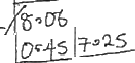 8.06
0.45 7.25